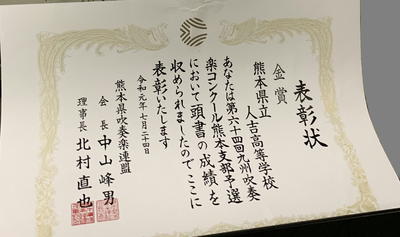 表彰状
金賞
熊本県立
人吉高等学校
あなたは第六十四回九州吹奏
楽コンクール熊本支部予選
において頭書の成績を
収められましたのでここに
表彰いたします
令和元年七月二十四日
熊本県吹奏楽連盟
会長 中山峰男
理事長 北村直也